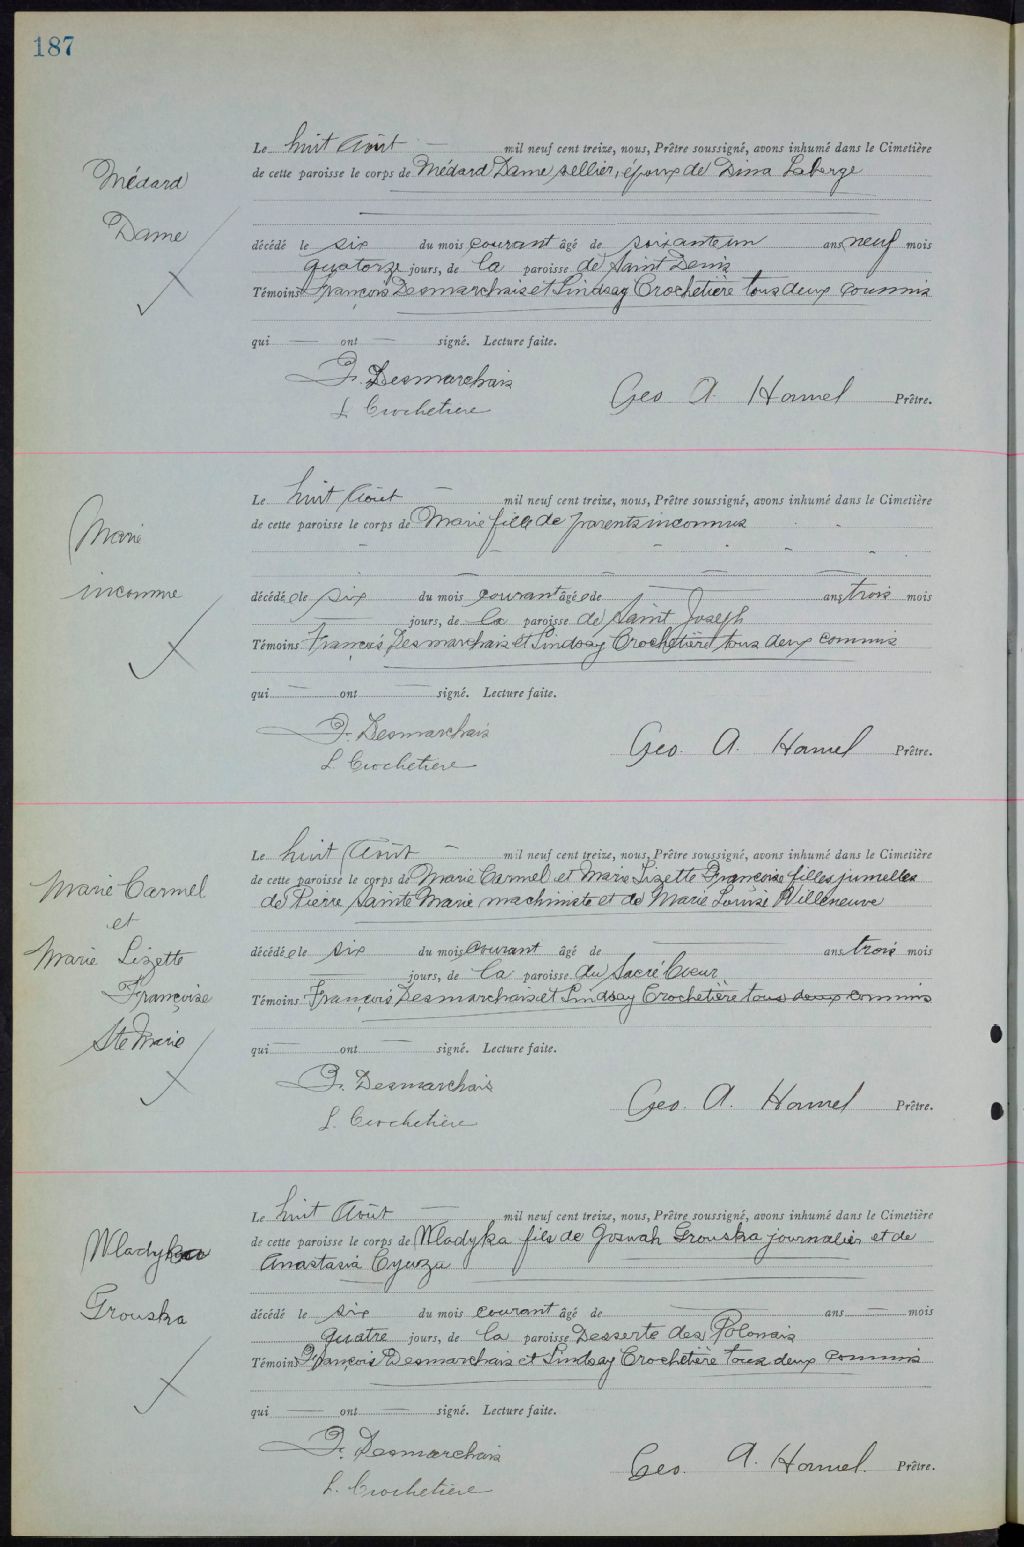 187
Médard
Dame
Le huit Août — mil neuf cent treize, nous, Prêtre soussigné, avons inhumé dans le Cimetière
de cette paroisse le corps de Médard Dame, sellier, époux de Dina Laberge
décédé le six du mois courant âgé de soixante un ans neuf mois
quatorze jours, de la paroisse de Saint Denis
Témoins François Desmarchais et Lindsay Crochetière tous deux commis
qui — ont — signé. Lecture faite.
F. Desmarchais
L. Crochetiere
Geo A. Hamel Prêtre.
Marie
inconnue
Le huit Août — mil neuf cent treize, nous, Prêtre soussigné, avons inhumé dans le Cimetière
de cette paroisse le corps de Marie fille de parents inconnus
décédée le six du mois courant âgée de — ans trois mois
— jours, de la paroisse de Saint Joseph
Témoins François Desmarchais et Lindsay Crochetière tous deux commis
qui — ont — signé. Lecture faite.
F. Desmarchais
L. Crochetiere
Geo. A. Hamel Prêtre.
Marie Carmel
et
Marie Lizette
Françoise
Ste Marie
Le huit Août — mil neuf cent treize, nous, Prêtre soussigné, avons inhumé dans le Cimetière
de cette paroisse le corps de Marie Carmel et Marie Lizette Françoise filles jumelles
de Pierre Sainte Marie machiniste et de Marie Louise Villeneuve
décédée le six du mois courant âgé de — ans trois mois
— jours, de la paroisse du Sacré Coeur
Témoins François Desmarchais et Lindsay Crochetière tous deux commis
qui — ont — signé. Lecture faite.
F. Desmarchais
L. Crochetière
Geo. A. Hamel Prêtre.
Wladyka
Grouska
Le huit Août — mil neuf cent treize, nous, Prêtre soussigné, avons inhumé dans le Cimetière
de cette paroisse le corps de Wladyka fils de Grouska journalier et de
Anastasia
décédé le six du mois courant âgé de — ans — mois
quatre jours, de la paroisse Desserte des Polonais
Témoins François Desmarchais et Lindsay Crochetière tous deux commis
qui — ont — signé. Lecture faite.
F. Desmarchais
L. Crochetiere
Geo. A. Hamel. Prêtre.